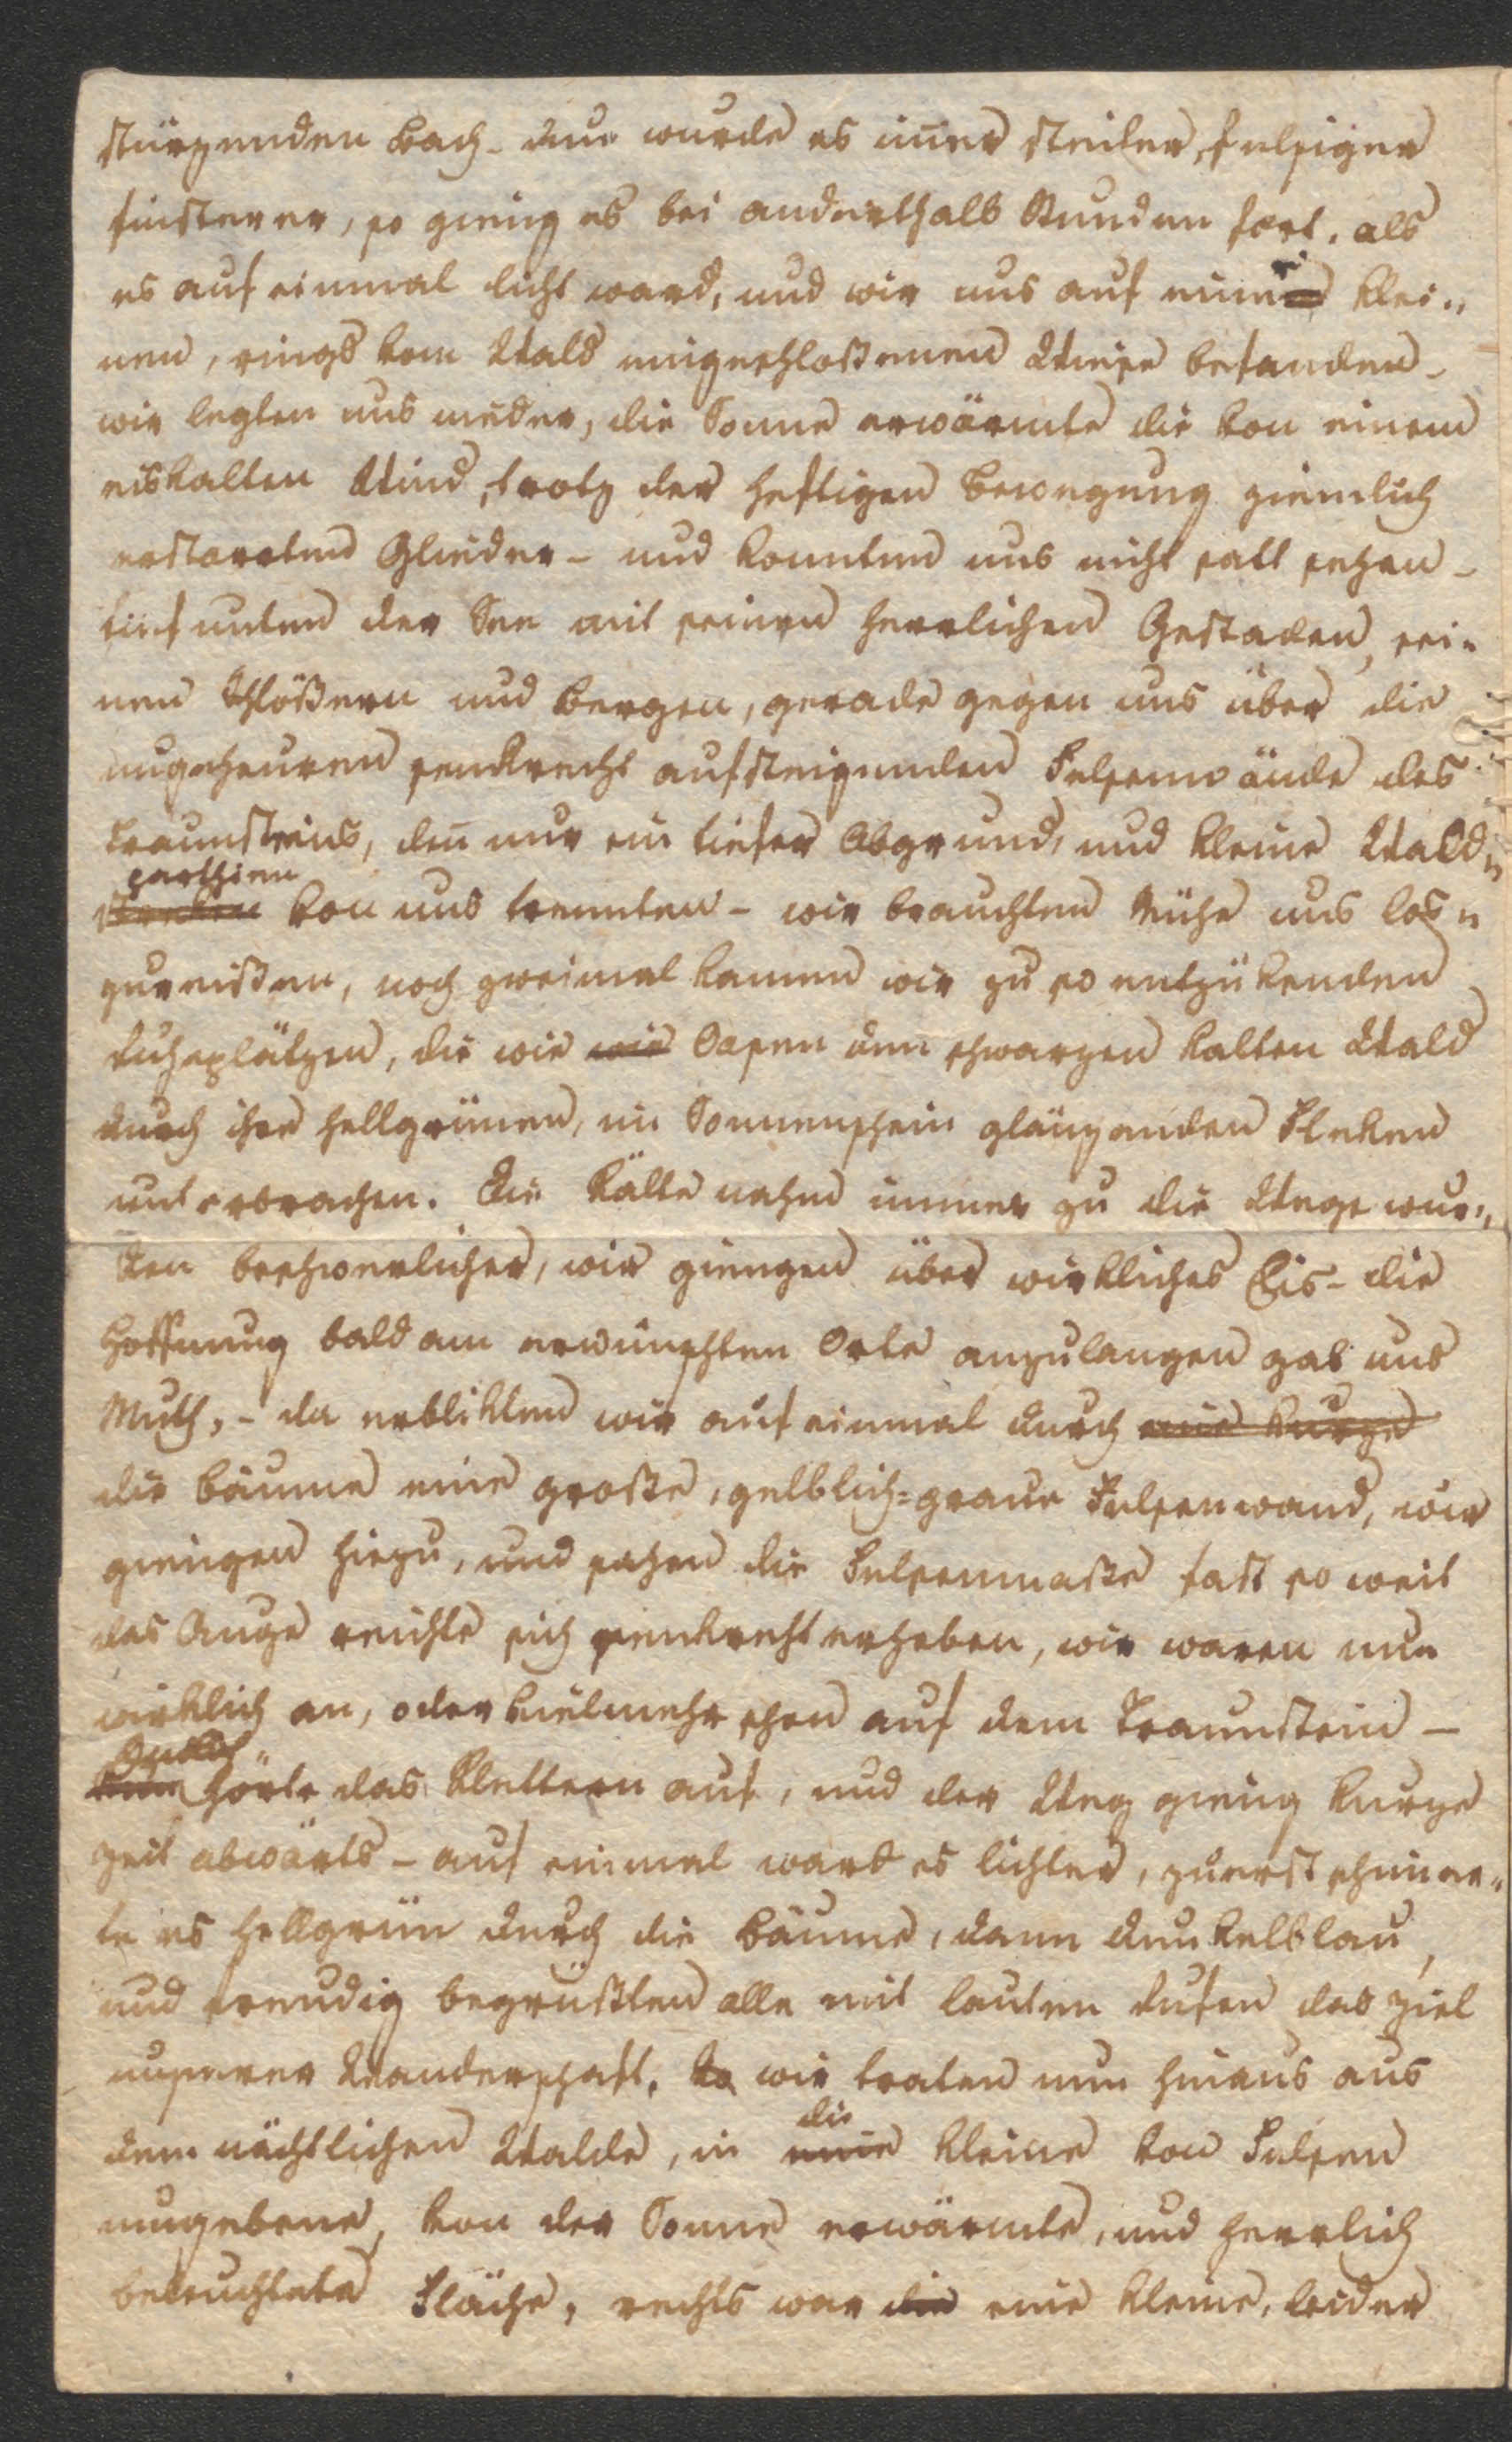 stürzenden Bach - nun wurde es im̅er steiler, felsiger
finsterer, so gieng es bei anderthalb Stunden fort, als
es auf einmal licht ward, und wir uns auf einer klei„
nen, rings vom Wald eingeschloßenen Wiese befanden -
wir legten uns nieder, die Sonne erwärmte die von einem
eiskalten Wind, trotz der heftigen Bewegung ziemlich
erstarrten Glieder - und konnten uns nicht satt sehen -
tief unten der See mit seinen herrlichen Gestaden, sei„
nen Schlößern und Bergen, gerade gegen uns über die
ungeheuren senkrecht aufsteigenden Felsenwände des
Traunsteins, den̅ nur ein tiefer Abgrund, und kleine Wald„
parthien
strecken von uns trennten - wir brauchten Mühe uns los„
zureißen, noch zweimal kamen wir zu so entzükenden
Ruheplätzen, die wie wie Oasen den schwarzen kalten Wald
durch ihre hellgrünen, im Sonnenschein glänzenden Fleken
unterbrachen. Die Kälte nahm immer zu die Wege wur„
den beschwerlicher, wir giengen über wirkliches Eis - die
Hoffnung bald am erwünschten Orte anzulangen gab uns
Muth, - da erblikten wir auf einmal durch eine kurze
die Bäume eine große, gelblich=graue Felsenwand, wir
giengen hiezu, und sahen die Felsenmaße fast so weit
das Auge reichte sich senkrecht erheben, wir waren nun
wirklich an, oder vielmehr schon auf dem Traunstein -
Endlich
nun hörte das Klettern auf, und der Weg gieng kurze
Zeit abwärts - auf einmal ward es lichter, zuerst schim̅er„
te es hellgrün durch die Bäume, dann dunkelblau,
und freudig begrüßten alle mit lauten Rufen das Ziel
unserer Wanderschaft. Da wir traten nun hinaus aus
dem nächtlichen Walde, in
die
eine kleine von Felsen
umgebene, von der Sonne erwärmte, und herrlich
beleuchtete Fläche, rechts war die eine kleine, leider